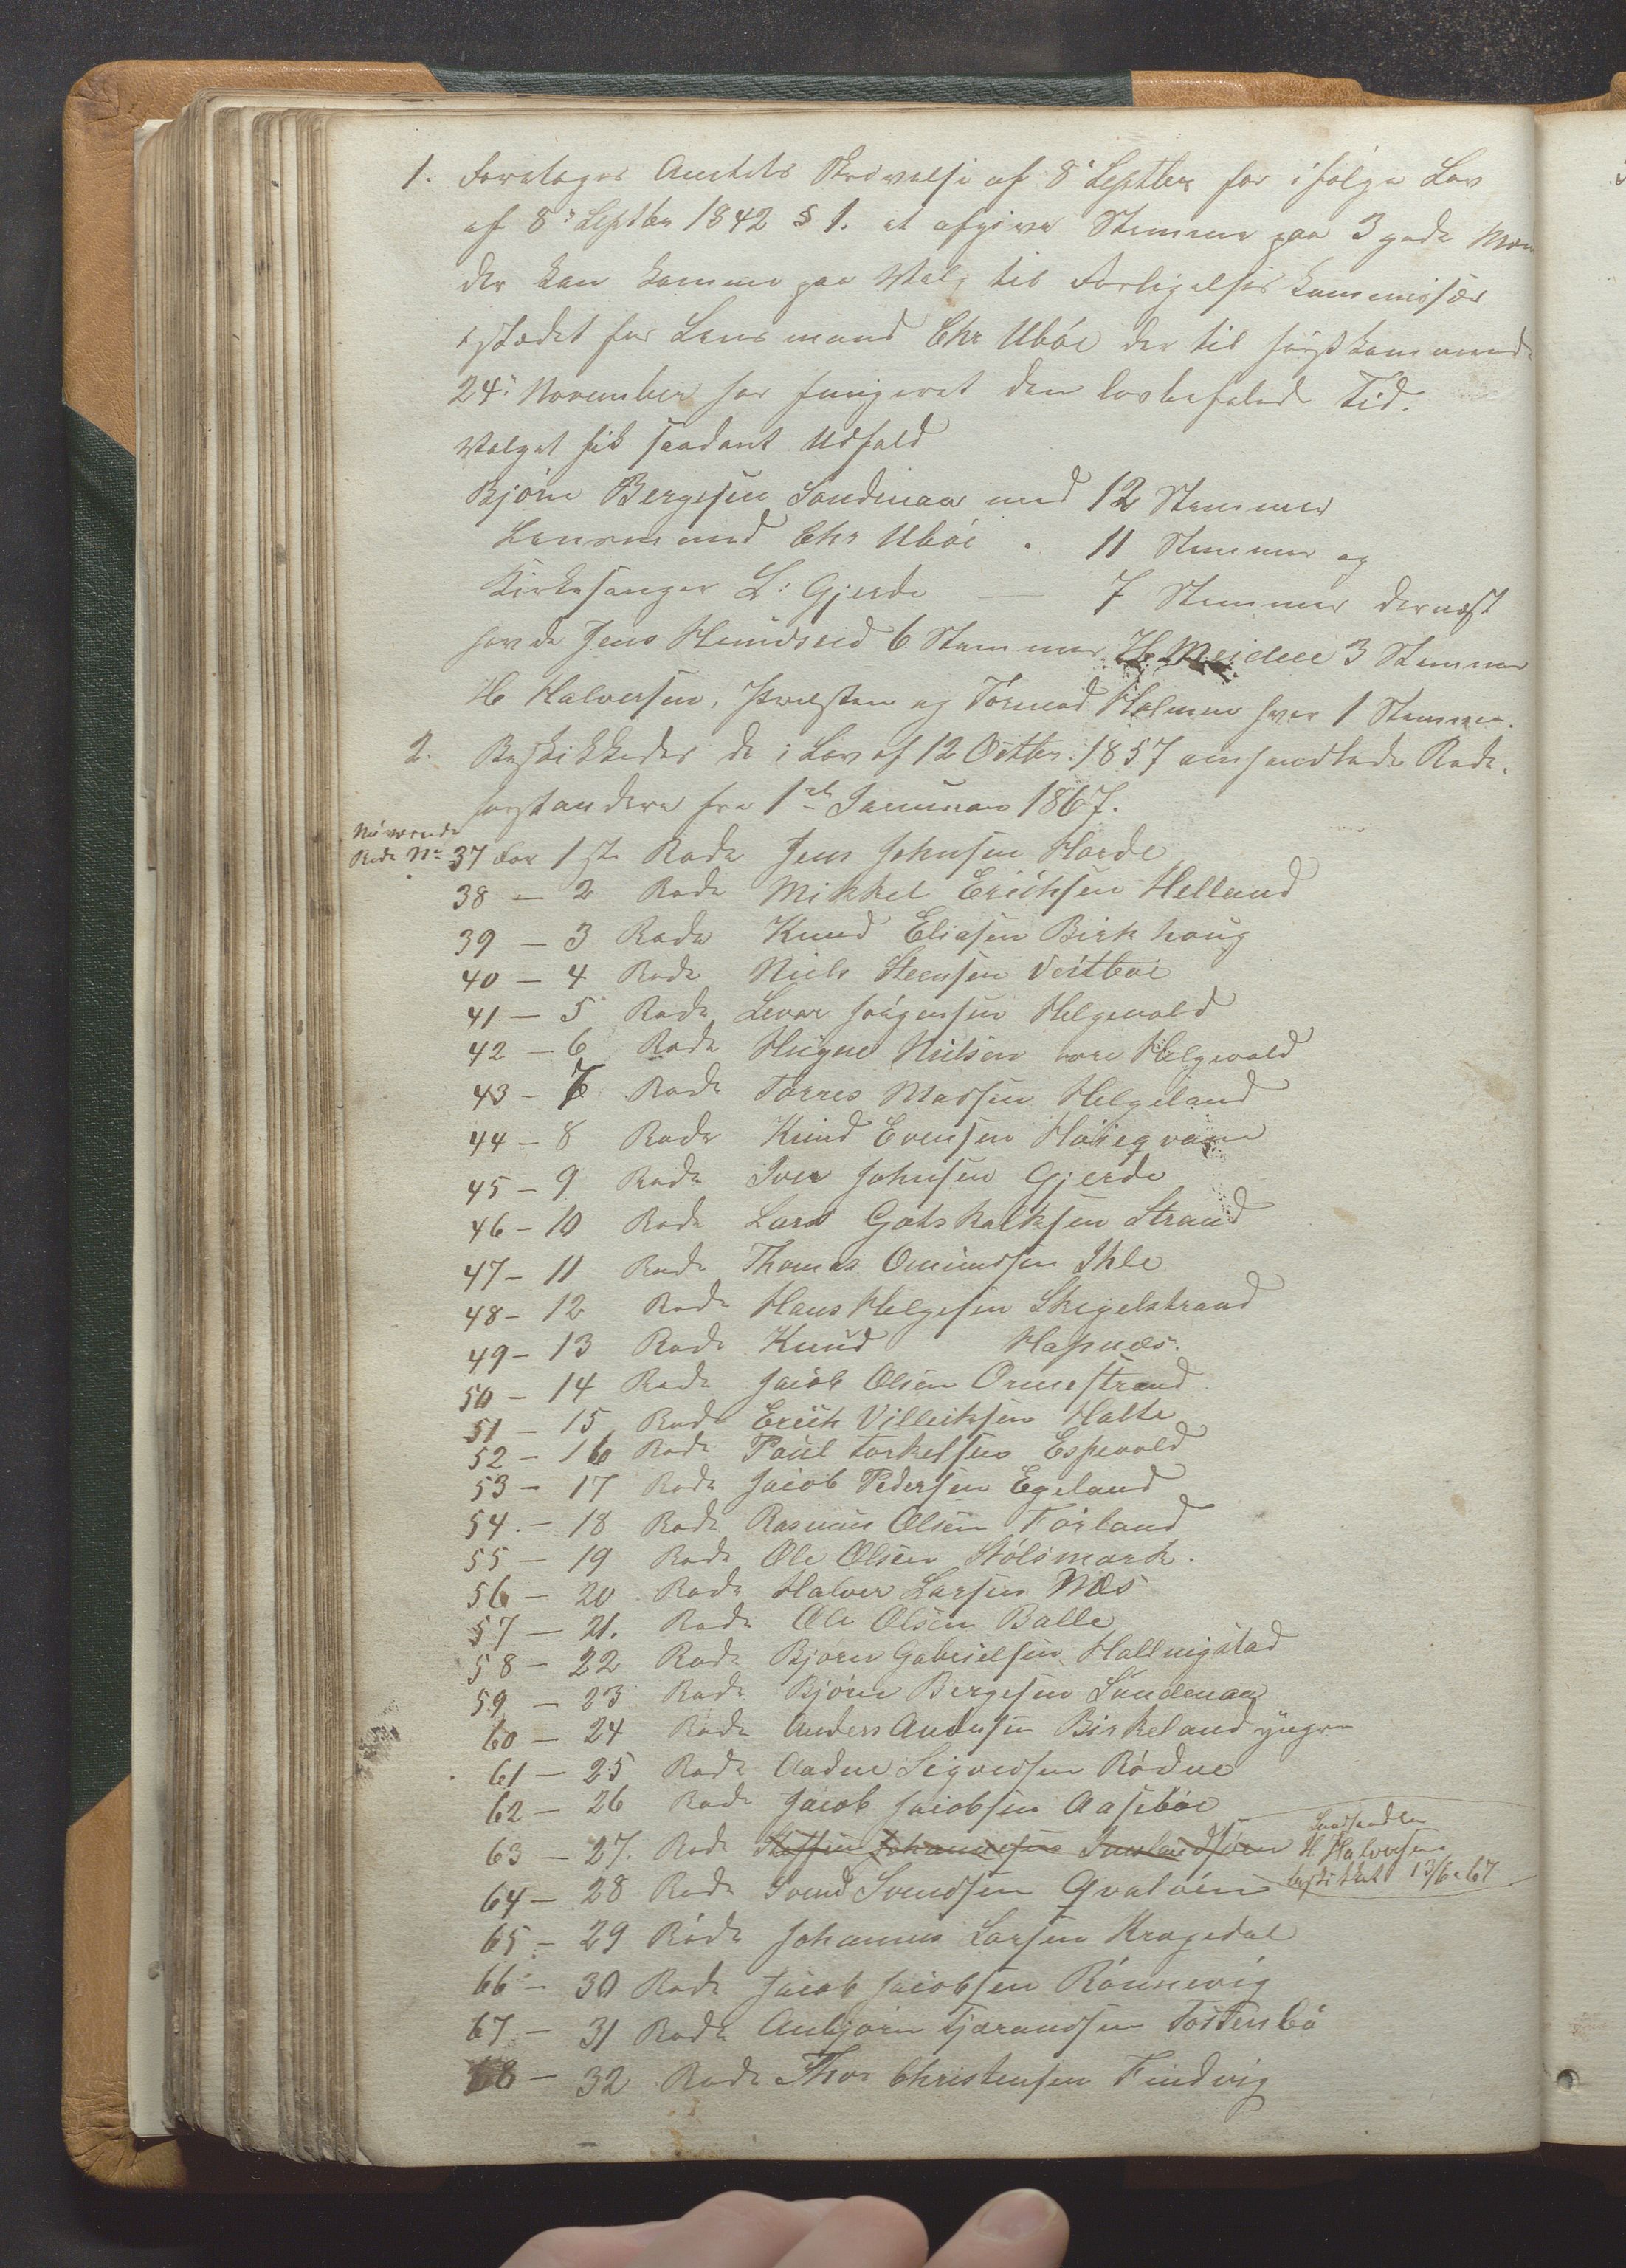 1. Foretoges Amtets Skrivelse af 8' Septbr for ifølge Lov
af 8' Septbr 1842 § 1. at afgive Stemme paa 3 gode Mæn
der kan komme paa Valg til Forligelses Kommissær
istædet for Lensmand Chr Ubøe der til førstkommende
24' November har fungeret den lovbefalede Tid.
Valget fik saadant Udfald
Bjørn Bergesen Søndenaa med 12 Stemmer
Lensmand Chr Ubøe . 11 Stemmer og
Kirkesanger L: Gjerde — 7 Stemmer dernæst
havde Jens Hundseid 6 Stemmer H. Meidell 3 Stemmer
H Halvorsen, og Tormod Holmen hver 1 Stemme.
2. Beskikkedes de i Lov af 12 Octbr. 1857 omhandlede Rode-
forstandere fra 1ste Januar 1867.
Nuværende
Rode No 37 For 1ste Rode Jens Johnsen Harde
38 — 2 Rode Mikkel Eriksen Helland
39 — 3 Rode Knud Eliasen Birkhaug
40 — 4 Rode Niels Steensen Vestbøe
41 — 5 Rode Levor Jørgensen Helgevold
42 — 6 Rode Nilsen Helgevold
43 — 7 Rode Torres Madsen Helgeland
44 — 8 Rode Knud Evensen
45 — 9 Rode Iver Johnsen Gjerde
46 — 10 Rode Lars Gotskalksen Strand
47 — 11 Rode Thomas Omundsen Ihle
48 — 12 Rode Hans Helgesen Skigelstrand
49 — 13 Rode Knud Hapnæs.
50 — 14 Rode Jacob Olsen Ormestrand
51 — 15 Rode Erik Villeiksen Halte
52 — 16 Rode Paul Torkelsen Espevold
53 — 17 Rode Jacob Pedersen Egeland
54. — 18 Rode Rasmus Olsen Førland
55 — 19 Rode Ole Olsen Stølsmark.
56 — 20 Rode Halvor Larsen Næs
57 — 21. Rode Ole Olsen Balle
58 — 22 Rode Bjørn Gabrielsen Hallingstad
59 — 23 Rode Bjørn Bergesen Søndenaa
60 — 24 Rode Anders Andersen Birkeland yngre
61 — 25 Rode Aadne Sigvedsen Rødne
62 — 26 Rode Jacob Jacobsen Aasebøe
63 — 27. Rode Johannesen Landhandler
H. Halvorsen
beskikket 13/6-67
64 — 28 Rode Svend Svendsen Qvaløen
65 — 29 Rode Johannes Larsen Kragedal
66 — 30 Rode Jacob Jacobsen Rønnevig
67 — 31 Rode Anbjørn Tjærandsen Tostensbø
68 — 32 Rode Thor Christensen Findvig